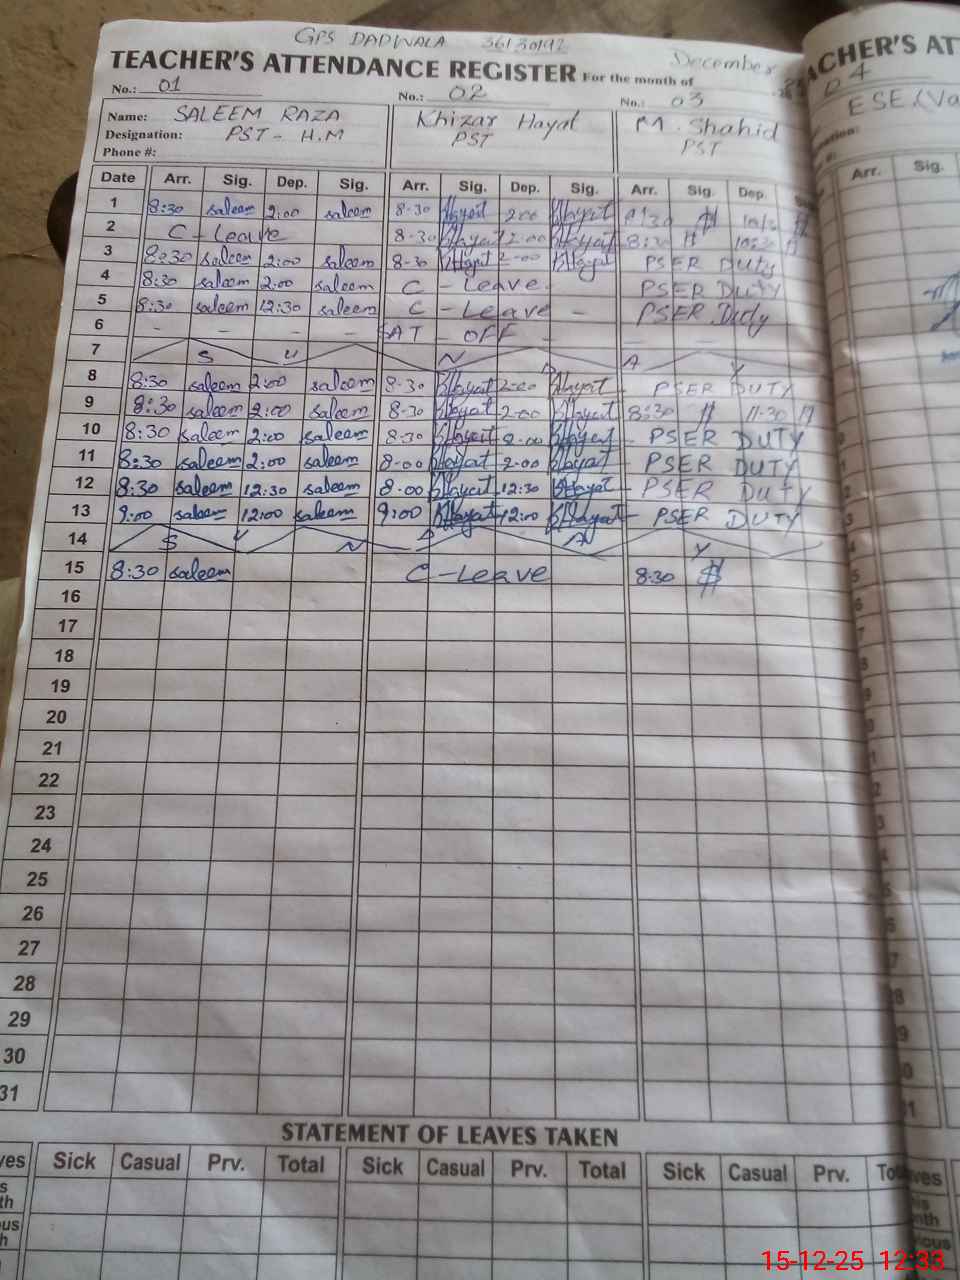 GPS DADWALA 36130192
TEACHER'S ATTENDANCE REGISTER For the month of December
No.: 01 No.: 02 No.: 03
Name: SALEEM RAZA Khizar Hayat M. Shahid
Designation: PST - H.M PST PST
Phone #:
Date Arr. Sig. Dep. Sig. Arr. Sig. Dep. Sig. Arr. Sig. Dep.
1 8:30 saleem 2:00 saleem 8-30 Hayat 2-00 Hayat
2 C-Leave 8-30 Hayat 2-00 Hayat 8:30 10:30
3 8:30 saleem 2:00 saleem 8-30 Hayat 2-00 Hayat PSER Duty
4 8:30 saleem 2:00 saleem C - Leave. PSER DUTY
5 8:30 saleem 12:30 saleem C - Leave - PSER Duty
6 - - - - SAT - OFF - - -
7 S U N D A Y
8 8:30 saleem 2:00 saleem 8-30 Hayat 2-00 Hayat - PSER DUTY
9 8:30 saleem 2:00 saleem 8-30 Hayat 2-00 Hayat 8:30 11:30
10 8:30 saleem 2:00 saleem 8-30 Hayat 2-00 Hayat - PSER DUTY
11 8:30 saleem 2:00 saleem 8-00 Hayat 2-00 Hayat - PSER DUTY
12 8:30 saleem 12:30 saleem 8-00 Hayat 12:30 Hayat - PSER DUTY
13 9:00 saleem 12:00 saleem 9:00 Hayat 12:00 Hayat - PSER DUTY
14 S U N D A Y
15 8:30 saleem C-Leave 8:30
16
17
18
19
20
21
22
23
24
25
26
27
28
29
30
31
STATEMENT OF LEAVES TAKEN
Sick Casual Prv. Total Sick Casual Prv. Total Sick Casual Prv.
ACHER'S AT
04
ESE
Arr. Sig.
15-12-25 12:33